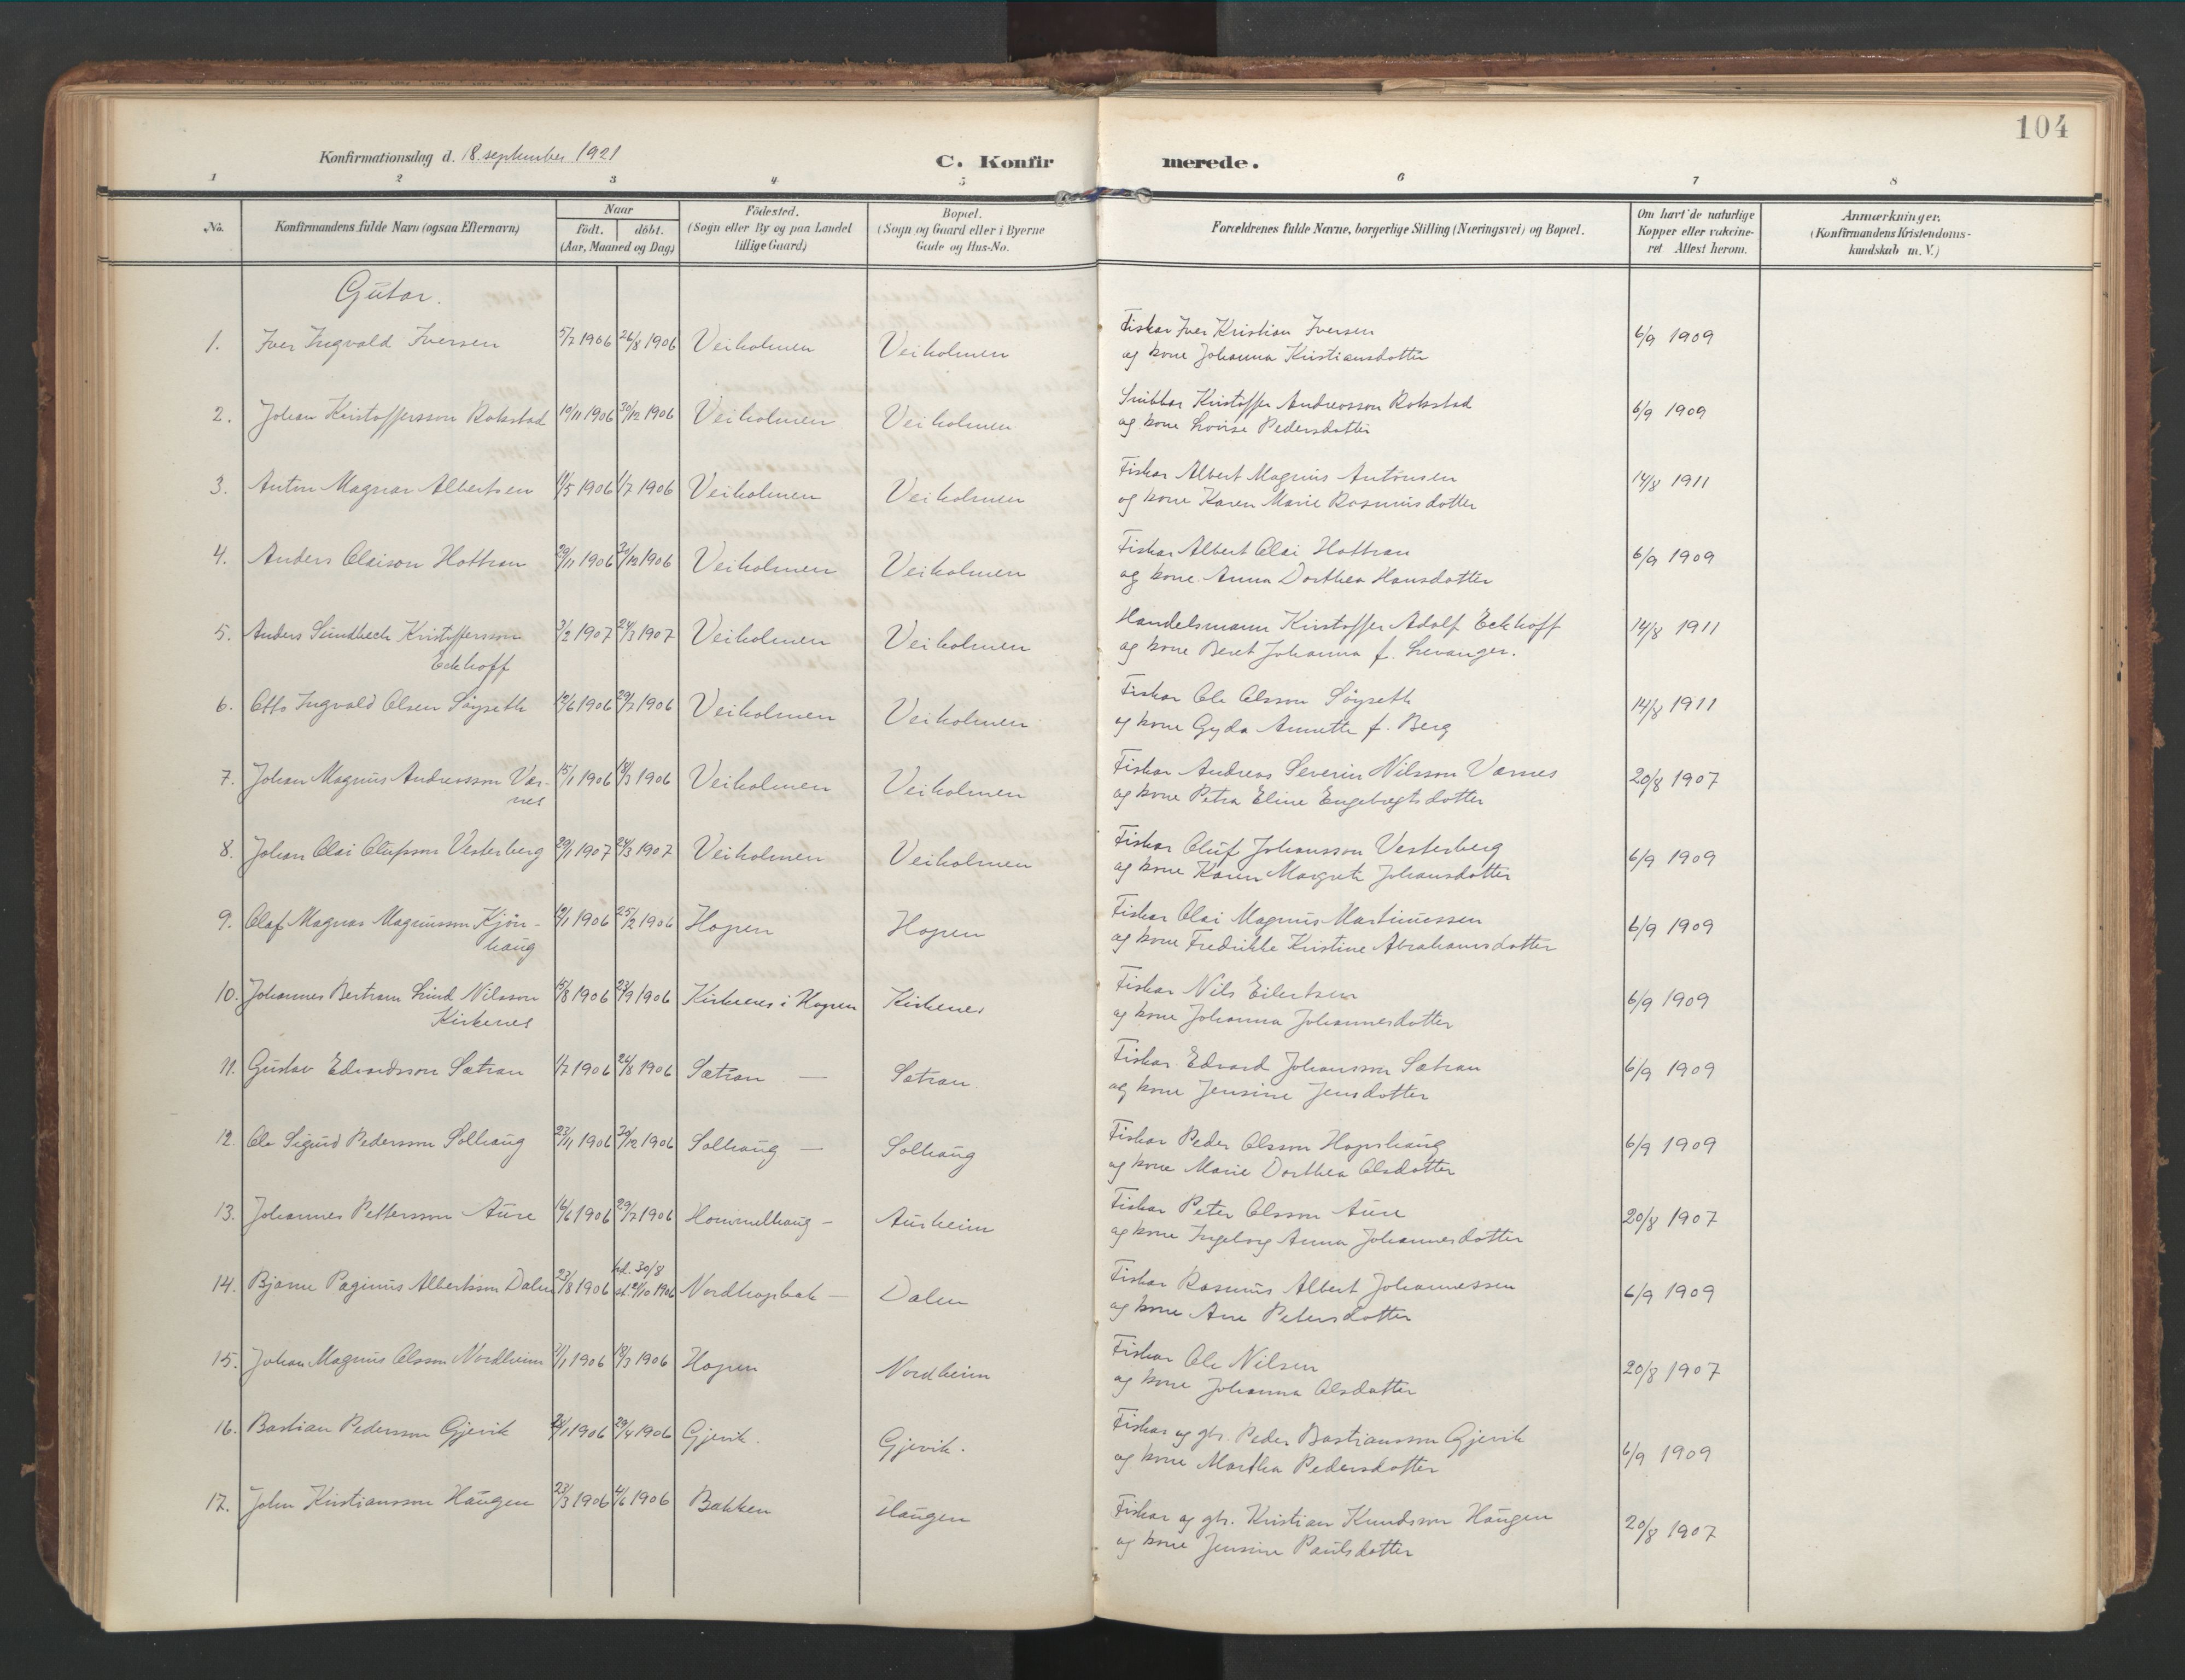 104
Konfirmationsdag d. 18. september 1921
C. Konfirmerede.
1 2 3 4 5 6 7 8
No.
Konfirmandens fulde Navn (ogsaa Efternavn)
Naar
födt. döbt.
(Aar, Maaned og Dag)
Födested.
(Sogn eller By og paa Landet
tillige Gaard)
Bopæl.
(Sogn og Gaard eller i Byerne
Gade og Hus-No.
Forældrenes fulde Navne, borgerlige Stilling (Næringsvei) og Bopæl.
Om havt de naturlige
Kopper eller vakcine-
ret Attest herom.
Anmærkninger.
(Konfirmandens Kristendoms-
kundskab m. V.)
Gutar.
1. Iver Ingvald Iversen 5/7 1906 26/8 1906 Veiholmen Veiholmen Fiskar Iver Kristian Iversen 6/9 1909
og kone Johanna Kristiansdotter
2. Johan Kristoffersson Rokstad 10/11 1906 30/12 1906 Veiholmen Veiholmen Snikkar Kristoffer Andreasson Rokstad 6/9 1909
og kone Lovise Pedersdotter
3. Anton Magnar Albertsen 11/5 1906 1/7 1906 Veiholmen Veiholmen Fiskar Albert Magnus Antonsen 14/8 1911
og kone Karen Marie Rasmusdotter
4. Anders Olaison Hottran 29/11 1906 30/12 1906 Veiholmen Veiholmen Fiskar Albert Olai Hottran 6/9 1909
og kone Anna Dorthea Hansdotter
5. Anders Sundbech Kristoffersson 3/2 1907 24/3 1907 Veiholmen Veiholmen Handelsmann Kristoffer Adolf Eckhoff 14/8 1911
Eckhoff og kone Beret Johanna f. Levanger.
6. Otto Ingvald Olsen Söyseth 12/6 1906 29/7 1906 Veiholmen Veiholmen Fiskar Ole Olsson Söyseth 14/8 1911
og kone Gyda Annette f. Berg
7. Johan Magnus Andreasson Vær- 15/1 1906 18/3 1906 Veiholmen Veiholmen Fiskar Andreas Severin Nilsson Værnes 20/8 1907
nes og kone Petra Eline Engebregtsdotter
8. Johan Olai Olufsson Vesterberg 29/1 1907 24/3 1907 Veiholmen Veiholmen Fiskar Oluf Johansson Vesterberg 6/9 1909
og kone Karen Margrete Johansdotter
9. Olaf Magnas Magnusson Kjön- 12/1 1906 25/2 1906 Hopen Hopen Fiskar Olai Magnus Martinussen 6/9 1909
haug og kone Fredrikke Kristine Abrahamsdotter
10. Johannes Bertram Lind Nilsson 15/8 1906 23/9 1906 Kirkenes i Hopen Kirkenes Fiskar Nils Eilertsen 6/9 1909
Kirkenes og kone Johanna Johannesdotter
11. Gustav Edvardsson Sætran 1/7 1906 26/8 1906 Sætran — Sætran Fiskar Edvard Johansson Sætran 6/9 1909
og kone Jensine Jensdotter
12. Ole Sigurd Pedersson Solhaug 23/11 1906 30/12 1906 Solhaug — Solhaug Fiskar Peder Olsson Hopshaug 6/9 1909
og kone Marie Dorthea Olsdotter
13. Johannes Pettersson Aure 16/6 1906 29/7 1906 Hommelhaug — Aurheim Fiskar Peter Olsson Aure 20/8 1907
og kone Ingeborg Anna Johannesdotter
14. Bjarne Paginus Albertsson Dalen 23/8 1906 hd. 30/8 Nordhopbak — Dalen Fiskar Rasmus Albert Johannessen 6/9 1909
1906 og kone Ane Petersdotter
15. Johan Magnus Olsson Nordheim 1906 18/3 1906 Hopen Nordheim Fiskar Ole Nilsen 20/8 1907
og kone Johanna Olsdotter
16. Bastian Pedersson Gjevik 1906 29/4 1906 Gjevik. Gjevik. Fiskar og gbr. Peder Bastiansson Gjevik 6/9 1909
og kone Martha Pedersdotter
17. John Kristiansson Haugen 23/3 1906 4/6 1906 Bakken Haugen Fiskar og gbr. Kristian Knudsson Haugen 20/8 1907
og kone Jensine Paulsdotter